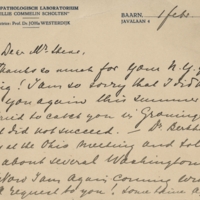 PATHOLOGISCH LABORATORIUM
"WILLIE COMMELIN SCHOLTEN"
Prof. Dr JOHa WESTERDIJK
BAARN, 1 Feb.
JAVALAAN 4
Dear Mr.
Thanks so much for your N.Y.
! I am so sorry that I did
you again this summer
tried to catch you in Groning
did not succeed! Dr.
at the Ohio meeting and told
about several Washington
Now I am again coming w
request to you! some time a